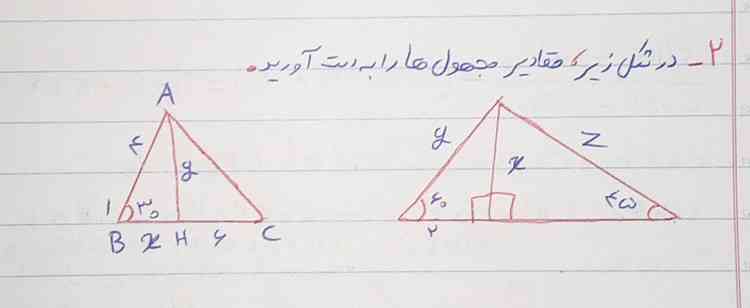 ۲- در شکل زیر، مقادیر مجهول ها را به دست آورید.
A
۴ y
۱ ۳۰
B x H ۶ C
y x z
۶۰ ۴۵
۲